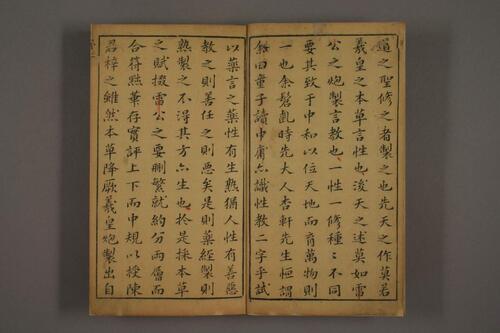 道之聖修之者製之也先天之作莫若
羲皇之本草言性也後天之述莫如雷
公之炮製言教也一性一修種〻不同
要其致于中和以位天地而育萬物則
一也余髫亂時先大人杏軒先生恒謂
余曰童子讀中庸亦識性教二字乎試
以藥言之藥性有生熟猶人性有善惡
教之則善任之則惡矣是則藥經製則
熟製之不得其方亦生也於是採本草
之賦掇雷公之要刪繁就約分兩層而
合符點華存實評上下而中規以授陳
君梓之雖然本草降厥羲皇炮製出自